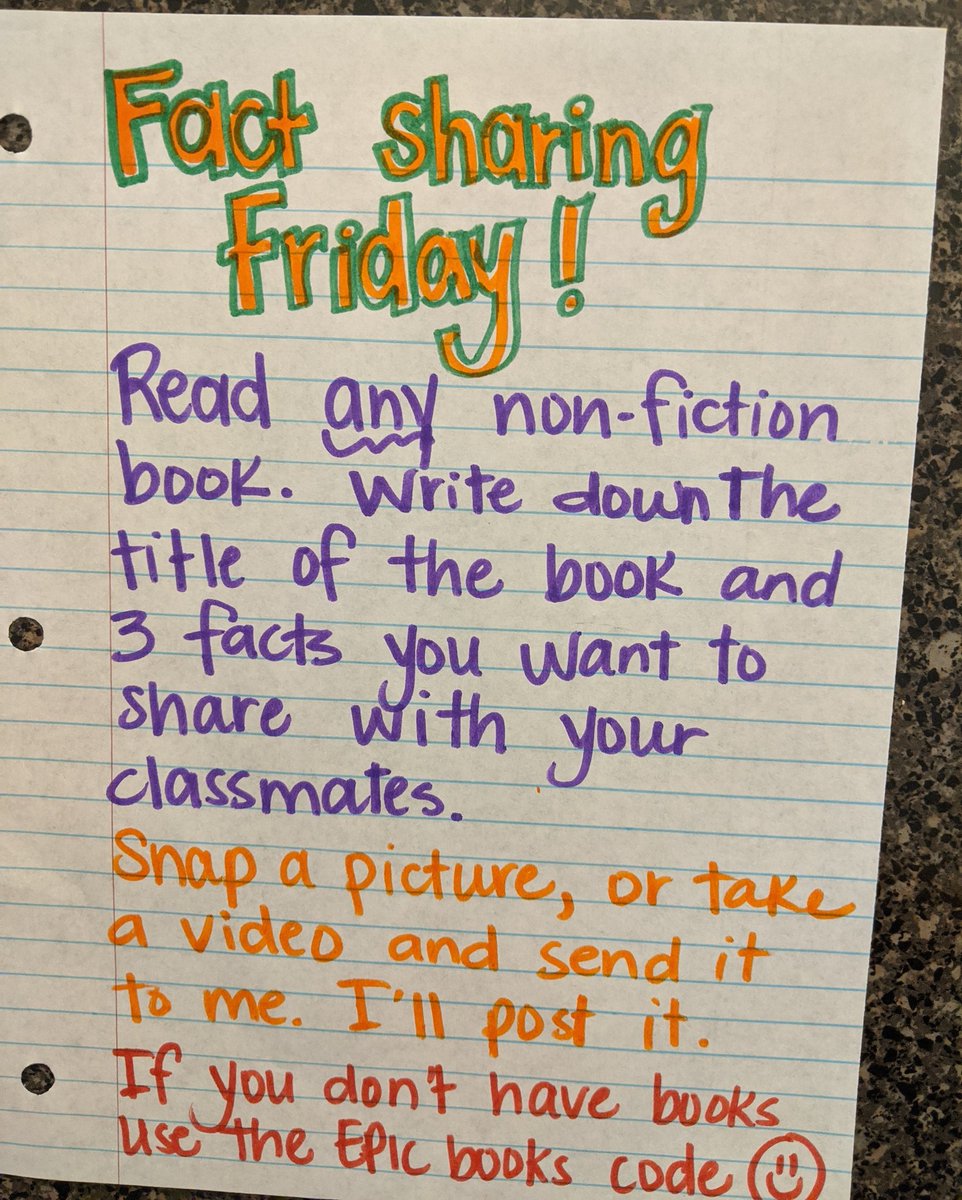 Fact sharing
Friday!
Read any non-fiction
book. Write down The
title of the book and
3 facts you want to
share with your
classmates.
Snap a picture, or take
a video and send it
to me. I'll post it.
If you don't have books
use the EPIC books code